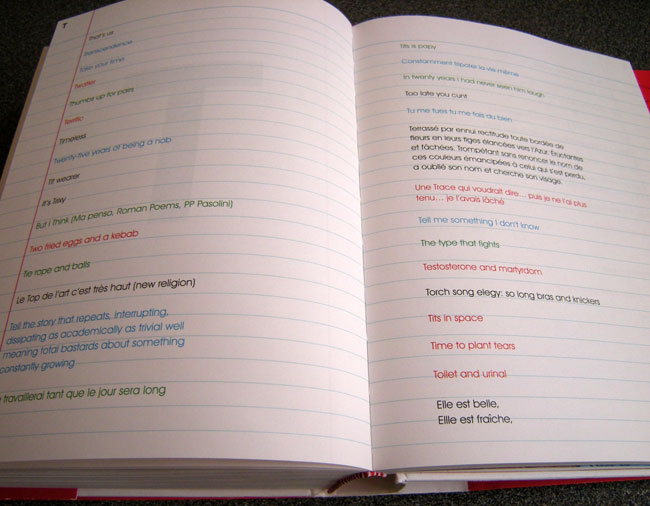 T
That's us
Transcendence
Take your time
Twatter
Thumbs up for pairs
Terrific
Timeless
Twenty-five years of being a nob
Tit wearer
It's Tissy
But I Think (Ma penso, Roman Poems, PP Pasolini)
Two fried eggs and a kebab
Tie rope and balls
Le Top de l'art c'est très haut (new religion)
Tell the story that repeats, interrupting,
dissipating as academically as trivial well
meaning total bastards about something
constantly growing
travaillerai tant que le jour sera long
Tits is papy
Constamment tripoter la vie même
In twenty years I had never seen him laugh
Too late you cunt
Tu me tues tu me fais du bien
Terrassé par ennui rectitude toute bordée de
fleurs en leurs tiges élancées vers l'Azur. Éructantes
et fâchées. Trompétant sans renoncer le nom de
ces couleurs émancipées à celui qui s'est perdu,
a oublié son nom et cherche son visage.
Une Trace qui voudrait dire... puis je ne l'ai plus
tenu... je l'avais lâché
Tell me something I don't know
The type that fights
Testosterone and martyrdom
Torch song elegy: so long bras and knickers
Tits in space
Time to plant tears
Toilet and urinal
Elle est belle,
Ellle est fraîche,